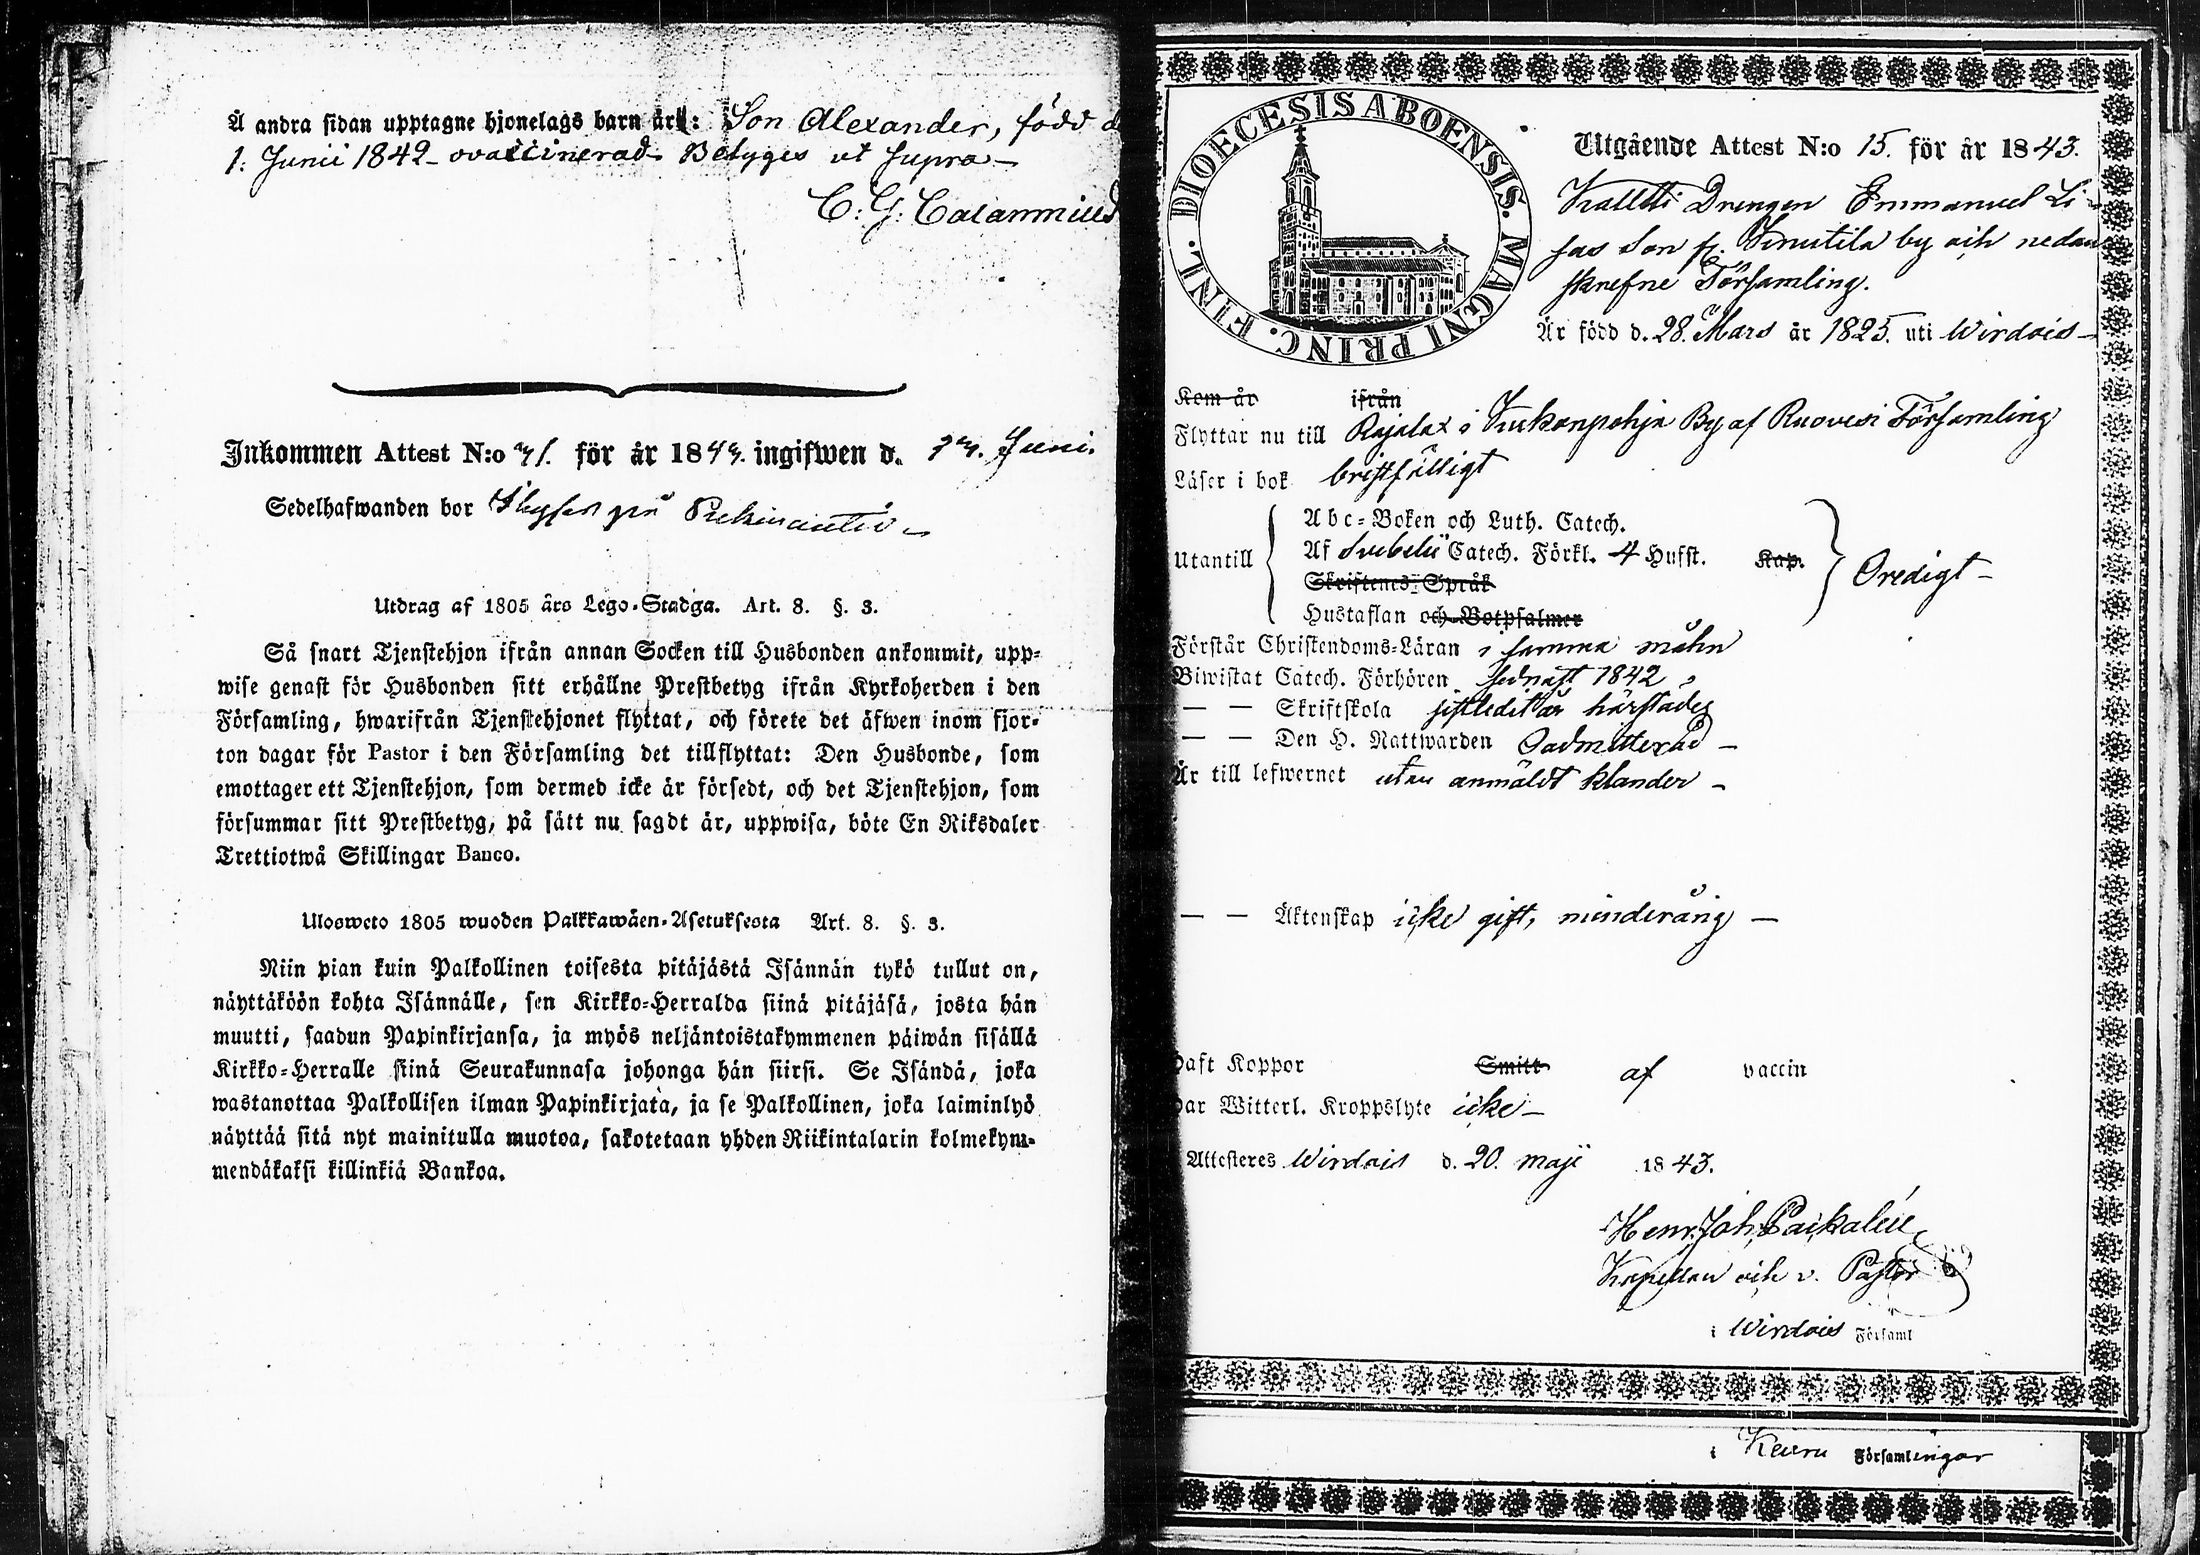 Å andra sidan upptagne hjonelags barn är: Son Alexander, född d
1. Junii 1842 - ovaccinerad - Betyges ut supra -
C: G: Calamnius
Inkommen Attest N:o för år 184 ingifwen d. Juni.
Sedelhafwanden bor på
Utdrag af 1805 års Lego-Stadga. Art. 8. §. 3.
Så snart Tjenstehjon ifrån annan Socken till Husbonden ankommit, upp-
wise genast för Husbonden sitt erhållne Prestbetyg ifrån Kyrkoherden i den
Församling, hwarifrån Tjenstehjonet flyttat, och förete det äfwen inom fjor-
ton dagar för Pastor i den Församling det tillflyttat: Den Husbonde, som
emottager ett Tjenstehjon, som dermed icke är försedt, och det Tjenstehjon, som
försummar sitt Prestbetyg, på sätt nu sagdt är, uppwisa, böte En Riksdaler
Trettiotwå Skillingar Banco.
Ulosweto 1805 wuoden Palkkawäen-Asetuksesta Art. 8. §. 3.
Niin pian kuin Palkollinen toisesta pitäjästä Isännän tykö tullut on,
näyttäköön kohta Isännälle, sen Kirkko-Herralda siinä pitäjäsä, josta hän
muutti, saadun Papinkirjansa, ja myös neljäntoistakymmenen päiwän sisällä
Kirkko-Herralle siinä Seurakunnasa johonga hän siirsi. Se Isändä, joka
wastanottaa Palkollisen ilman Papinkirjata, ja se Palkollinen, joka laiminlyö
näyttää sitä nyt mainitulla muotoa, sakotetaan yhden Riikintalarin kolmekym-
mendäkaksi killinkiä Bankoa.
FINL. DIOECESIS ABOENSIS. MAGNI PRINC.
Utgående Attest N:o 15. för år 1843.
Drengen Emmanuel Li-
sas Son fr. by och nedan
skrefne Församling.
Är född d. 28. Mars år 1825. uti Wirdois -
Kom år ifrån
Flyttar nu till Rajalax i Kukonpohja By af Ruovesi Församling
Läser i bok bristfälligt
Abc-Boken och Luth. Catech.
Utantill Af Svebelii Catech. Förkl. 4 Hufst. Kap. Oredigt -
Skriftenes Språk
Hustaflan och Botpsalmer
Förstår Christendoms-Läran i samma mohn
Biwistat Catech. Förhören sednast 1842
— — Skriftskola härstädes
— — Den H. Nattwarden Oadmitterad -
Är till lefwernet utan anmäldt klander -
— — Äktenskap icke gift, minderårig —
Haft Koppor Smitt af vaccin
Har Witterl. Kroppslyte icke -
Attesteres Wirdois d. 20. maji 1843.
Henr. Joh. Paikalén
Kapellan och v. Pastor
i Wirdois Församl
i Keuru Församlingar